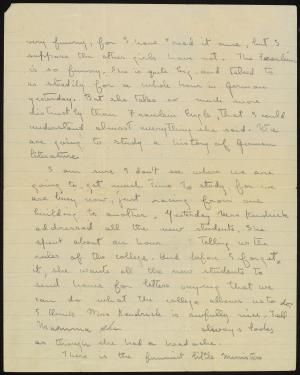 very funny, for I have read it once, but I
suppose the other girls have not. The Fraulein
is so funny. She is quite big and talked to
us steadily for a whole hour in German
yesterday. But she talks so much more
distinctly than Fraulein Engle, that I could
understand almost everything she said. We
are going to study a history of German
literature.
I am sure I don't see where we are
going to get much time to study for we
are busy now, just racing from one
building to another. Yesterday Mrs Kendrick
addressed all the new students. She
spent about an hour telling us the
rules of the college. And before I forget
it, she wants all the new students to
send home for letters saying that we
can do what the college allows us to do.
I think Mrs Kendrick is awfully nice. Tell
Mamma she always looks
as though she had a headache.
There is the funniest little minister